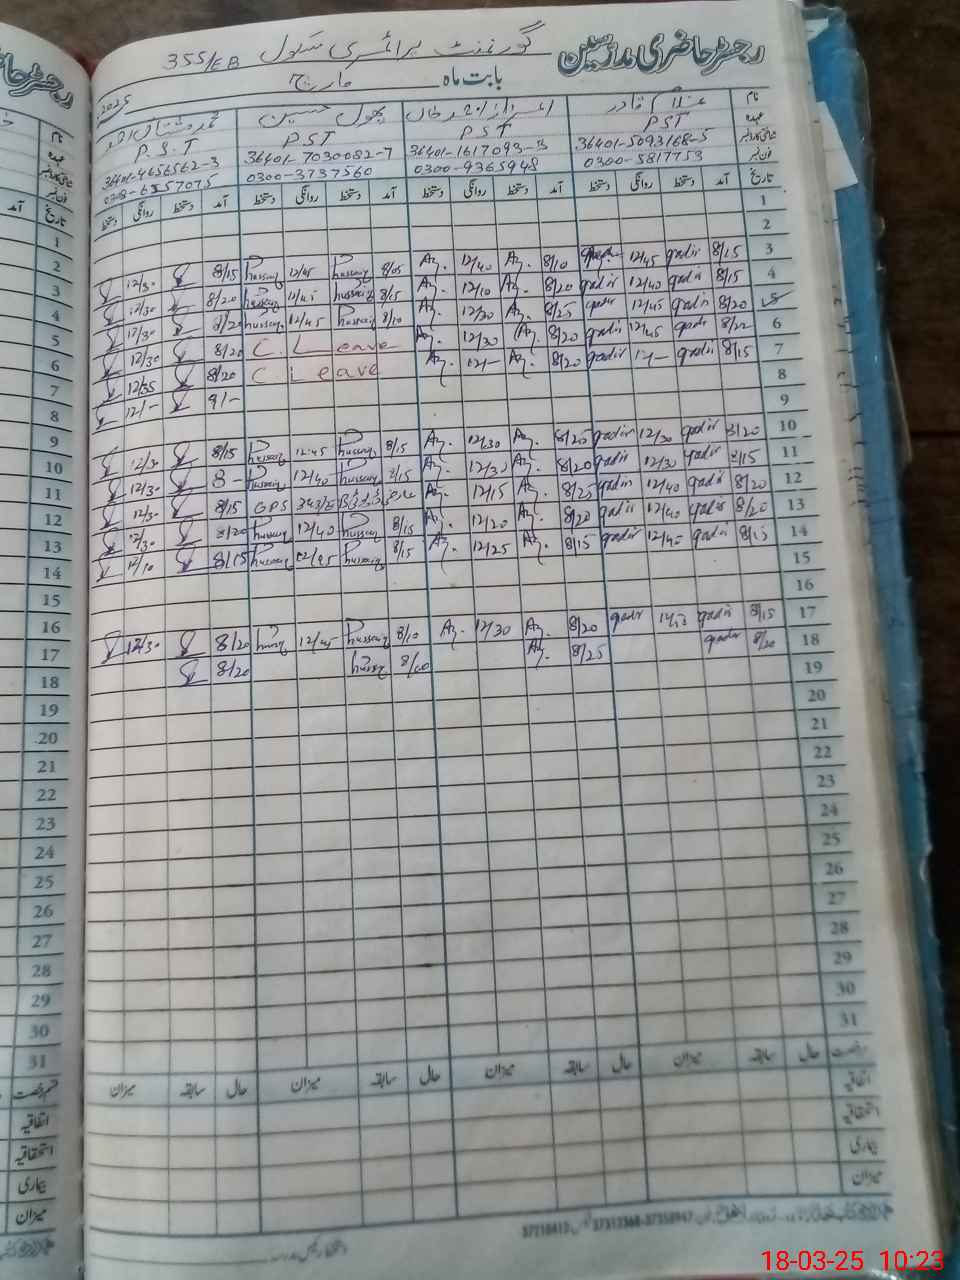 رجسٹر حاضری مدرسین
گورنمنٹ پرائمری سکول 355/EB
بابت ماہ مارچ 2025
نام غلام قادر پھول حسین
PST PST PST P.S.T
36401-5093168-5 36401-1617093-3 36401-7030082-7 36401-4656562-3
0300-5817753 0300-9365948 0300-3737560
تاریخ آمد دستخط روانگی دستخط آمد دستخط روانگی دستخط آمد دستخط روانگی دستخط آمد دستخط روانگی دستخط تاریخ
1
2
3 8/15 qadir 12/45 8/10 Az. 12/40 Az. 8/05 hussain 12/45 hussain 8/15 12/30
4 8/15 qadir 12/40 qadir 8/20 Az. 12/10 Az. 8/15 hussain 12/45 hussain 8/20 12/30
5 8/20 qadir 12/45 qadir 8/25 Az. 12/20 Az. 8/10 hussain 12/45 hussain 8/20 12/30
6 8/22 qadir 12/45 qadir 8/20 Az. 12/30 Az. C. Leave 8/20 12/30
7 8/15 qadir 12/- qadir 8/20 Az. 12/- Az. C Leave 8/20 12/35
8 9/- 12/-
9
10 8/20 qadir 12/30 qadir 8/25 Az. 12/30 Az. 8/15 hussain 12:45 hussain 8/15 12/30
11 8/15 qadir 12/30 qadir 8/20 Az. 12/30 Az. 8/15 hussain 12/40 hussain 8- 12/30
12 8/20 qadir 12/40 qadir 8/25 Az. 12/15 Az. GPS 343/EB 8/15 12/30
13 8/20 qadir 12/40 qadir 8/20 Az. 12/20 Az. 8/15 hussain 12/40 hussain 8/20 12/30
14 8/15 qadir 12/45 qadir 8/15 Az. 12/25 Az. 8/15 hussain 12/45 hussain 8/15 12/10
15
16
17 8/15 qadir qadir 8/20 Az. 12/30 Az. 8/10 hussain 12/45 hussain 8/20 12/30
18 8/20 qadir 8/25 Az. 8/00 hussain 8/20
19
20
21
22
23
24
25
26
27
28
29
30
31
رخصت حال سابقہ میزان حال سابقہ میزان حال سابقہ میزان حال سابقہ میزان
اتفاقیہ
استحقاقیہ
بیماری
میزان
18-03-25 10:23